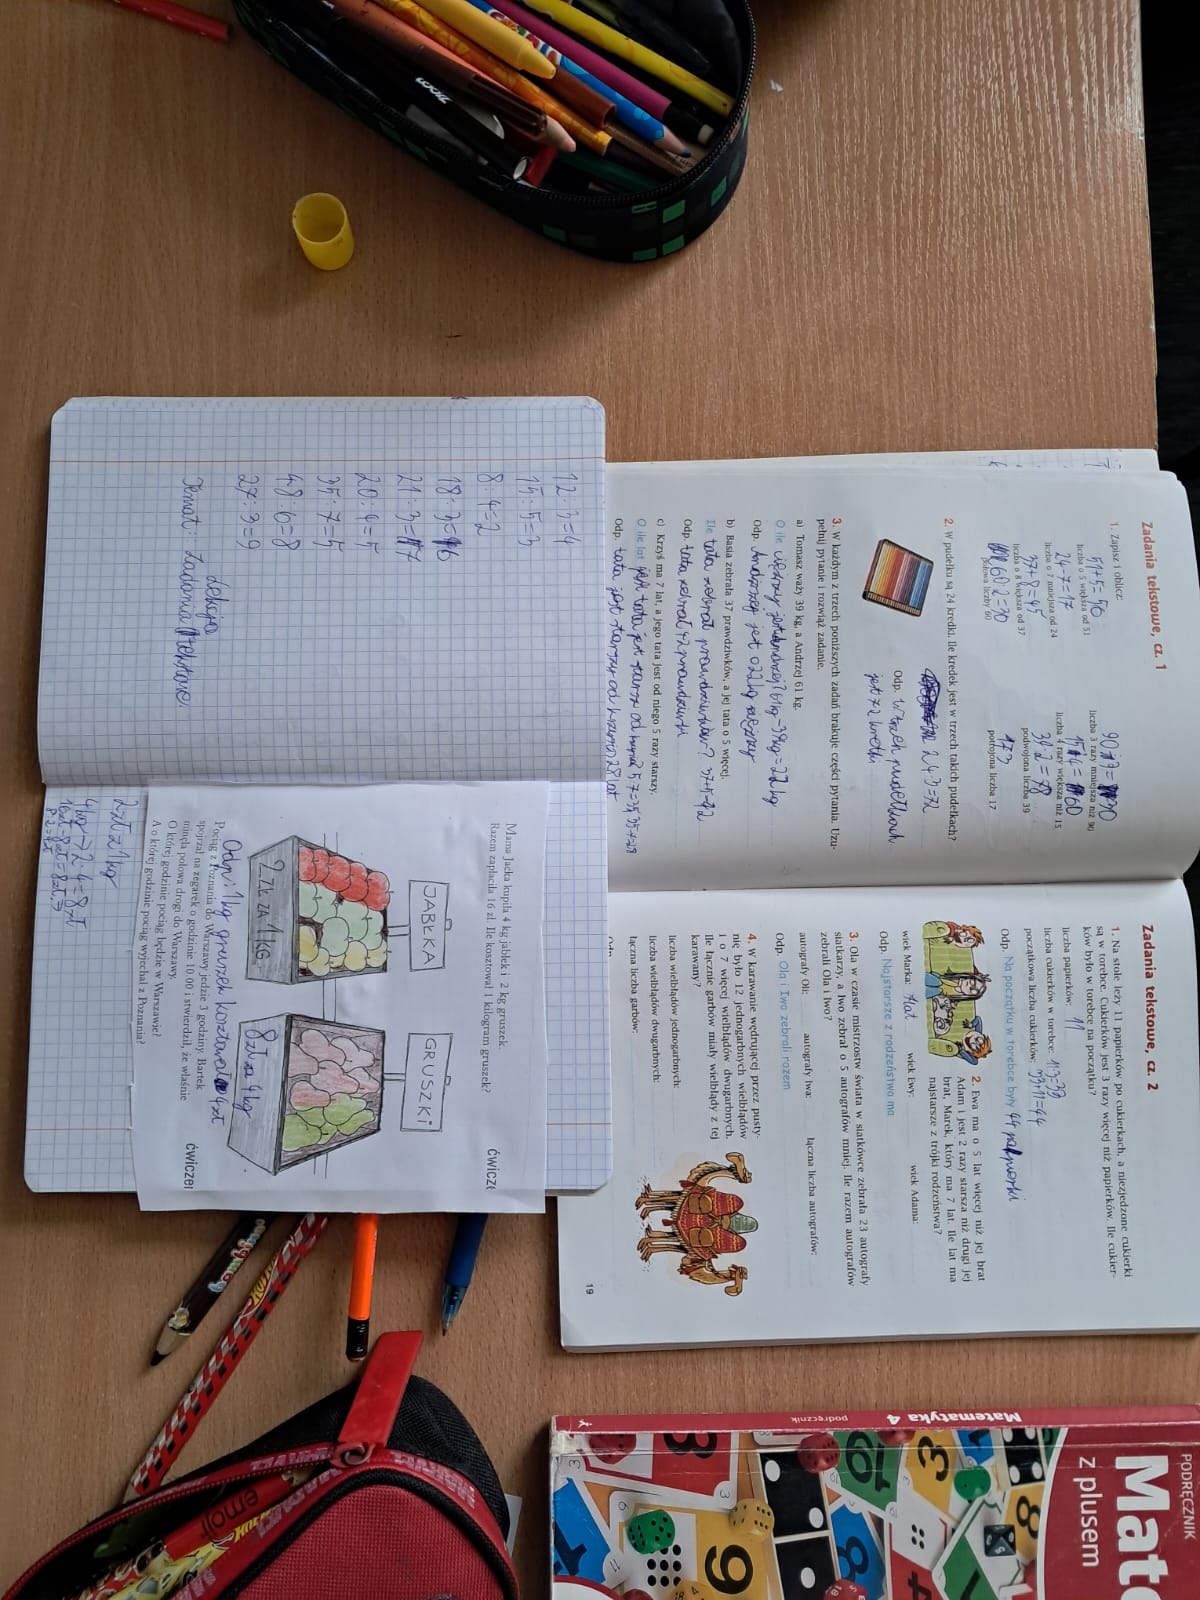 Zadania tekstowe, cz. 1
1. Zapisz i oblicz:
liczba o 5 większa od 51
24-7=17
liczba o 7 mniejsza od 24
37+8=45
liczba o 8 większa od 37
60:2=30
połowa liczby 60
liczba 3 razy mniejsza niż 90
15·4=60
liczba 4 razy większa niż 15
39·2=78
podwojona liczba 39
17·3
potrojona liczba 17
2. W pudełku są 24 kredki. Ile kredek jest w trzech takich pudełkach?
24·3=72
Odp. W trzech pudełkach
jest 72 kredki
3. W każdym z trzech poniższych zadań brakuje części pytania. Uzu-
pełnij pytanie i rozwiąż zadanie.
a) Tomasz waży 39 kg, a Andrzej 61 kg.
O ile cięższy jest Andrzej? 61kg-39kg=22kg
Odp. Andrzej jest o 22kg cięższy
b) Basia zebrała 37 prawdziwków, a jej tata o 5 więcej.
Ile tata zebrał prawdziwków? 37+5=42
Odp. tata zebrał 42 prawdziwki
c) Krzyś ma 7 lat, a jego tata jest od niego 5 razy starszy.
O ile lat jest tata starszy od 5·7=35 35-7=28
Odp. tata jest starszy od krzysia 28 lat
Zadania tekstowe, cz. 2
1. Na stole leży 11 papierków po cukierkach, a niezjedzone cukierki
są w torebce. Cukierków jest 3 razy więcej niż papierków. Ile cukier-
ków było w torebce na początku?
liczba papierków: 11
liczba cukierków w torebce: 11·3=33
początkowa liczba cukierków: 33+11=44
Odp. Na początku w torebce były 44
2. Ewa ma o 5 lat więcej niż jej brat
Adam i jest 2 razy starsza niż drugi jej
brat, Marek, który ma 7 lat. Ile lat ma
najstarsze z trójki rodzeństwa?
wiek Marka: 7lat wiek Ewy: wiek Adama:
Odp. Najstarsze z rodzeństwa ma
3. Ola w czasie mistrzostw świata w siatkówce zebrała 23 autografy
siatkarzy, a Iwo zebrał o 5 autografów mniej. Ile razem autografów
zebrali Ola i Iwo?
autografy Oli: autografy Iwa: łączna liczba autografów:
Odp. Ola i Iwo zebrali razem
4. W karawanie wędrującej przez pusty-
nię było 12 jednogarbnych wielbłądów
i o 7 więcej wielbłądów dwugarbnych.
Ile łącznie garbów miały wielbłądy z tej
karawany?
liczba wielbłądów jednogarbnych:
liczba wielbłądów dwugarbnych:
łączna liczba garbów:
19
12:3=4
15:5=3
8:4=2
18:3=6
21:3=7
20:4=5
35:7=5
48:6=8
27:3=9
Lekcja
Temat: Zadania tekstowe
Mama Jacka kupiła 4 kg jabłek i 2 kg gruszek.
Razem zapłaciła 16 zł. Ile kosztował 1 kilogram gruszek?
JABŁKA
GRUSZKI
2 ZŁ ZA 1 KG
8zł za 4kg
Odp: 1kg gruszek kosztował 4zł
Pociąg z Poznania do Warszawy jedzie 3 godziny. Bartek
spojrzał na zegarek o godzinie 10.00 i stwierdził, że właśnie
minęła połowa drogi do Warszawy.
O której godzinie pociąg będzie w Warszawie?
A o której godzinie pociąg wyjechał z Poznania?
2zł za 1kg
4kg → 2·4=8zł
16zł-8zł=8zł
PODRĘCZNIK
z plusem
Matematyka 4
podręcznik
emoji